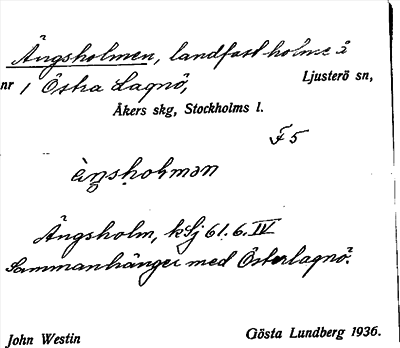 Ängsholmen, landfast holme å
nr 1 Östra Lagnö, Ljusterö sn,
Åkers skg, Stockholms l.
F5
Ängsholm, kSj 61.6.IV
Sammanhänger med Österlagnö.
John Westin Gösta Lundberg 1936.